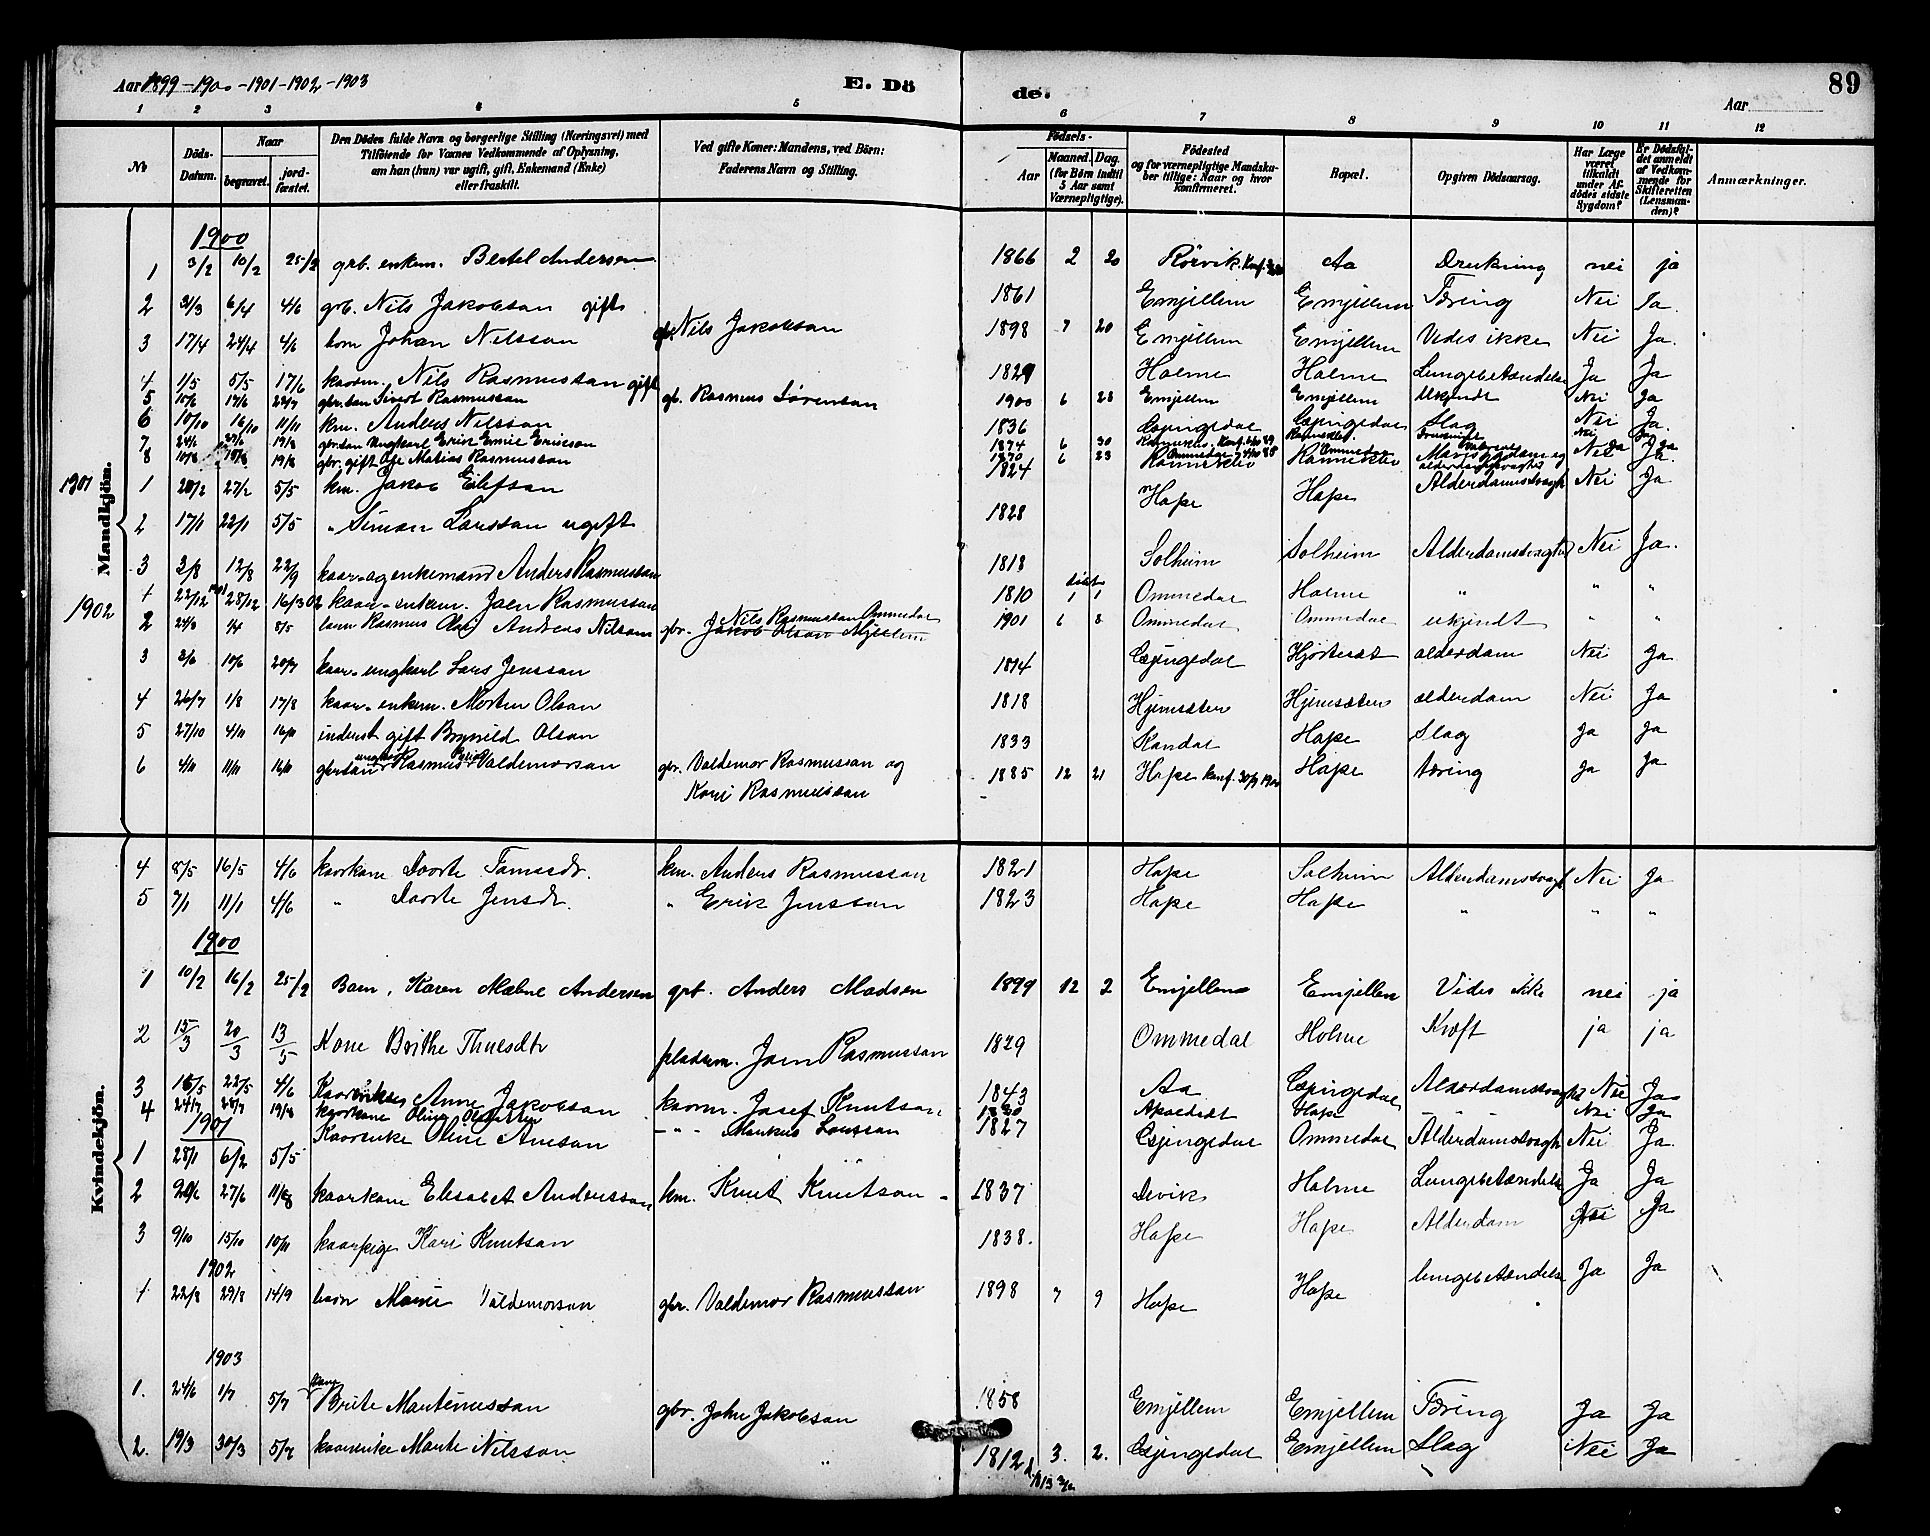 Aar 1899-1900-1901-1902-1903
E. Dö
de.
Aar
89
1 2 3 4 5 6 7 8 9 10 11 12
No
Döds-Datum.
Naar
begravet.
jord-fæstet.
Den Dödes fulde Navn og borgerlige Stilling (Næringsvei) med
Tilföiende for Voxnes Vedkommende af Oplysning,
om han (hun) var ugift, gift, Enkemand (Enke)
eller fraskilt.
Ved gifte Koner: Mandens, ved Börn:
Faderens Navn og Stilling.
Födsels-
Aar
Maaned. Dag.
(for Börn indtil
5 Aar samt
Værnepligtige).
Födested
og for værnepligtige Mandska-
ber tillige: Naar og hvor
Konfirmeret.
Bopæl.
Opgiven Dödsaarsag.
Har Læge
været
tilkaldt
under Af-
dödes sidste
Sygdom?
Er Dödsfal-
det anmeldt
af Vedkom-
mende for
Skifteretten
(Lensman-
den)?
Anmærkninger.
Mandkjön.
1900
1 3/2 10/2 25/2 grb. enkem. Bertel Andersen 1866 2 20 Rörvik Konf. Aa Drukning nei ja
2 31/3 6/4 4/6 grb. Nils Jakobson gift 1861 Emjellem Emjellem Tæring Nei Ja.
3 17/4 24/4 4/6 barn Johan Nilsson gbr. Nils Jakobson 1898 7 20 Emjellem Emjellem Vides ikke Nei Ja.
4 1/5 5/5 17/6 kaarm. Nils Rasmusson gift 1829 Holme Holme Lungebetændelse Ja Ja
5 10/6 17/6 22/7 gbr. søn Sivert Rasmusson gb. Rasmus Sörenson 1900 6 23 Emjellem Emjellem Ukjendt Nei Ja
6 10/10 16/10 11/11 km. Anders Nilsson 1836 Espingedal Espingedal Slag Nei Ja.
7 19/8 gbr. søn Ungkarl Erik Emil Ericson 1874 6 30 Nei
8 10/8 19/8 gbr. gift Ole Matias Rasmusson 1870 6 23 Nei Ja
1901
1 20/2 27/2 5/5 km. Jakob Elefson 1824 Hope Hope Alderdomssvaghed Nei Ja
2 17/1 22/1 5/5 " Simon Larsson ugift 1828
3 3/8 12/8 22/9 kaar- og enkemand Anders Rasmusson 1818 Solheim Solheim Alderdomssvaghed Nei Ja.
1902
1 22/12 1901 28/12 16/3 02 kaar-enkem. Joen Rasmusson 1810 1 1 Ommedal Holme " " "
2 24/3 1/4 8/5 barn Rasmus Olai Andreas Nilsson gbr. Nils Rasmusson Ommedal Jakob Olson Mjellem 1901 6 8 Ommedal Ommedal ukjendt " "
3 3/6 10/6 20/7 kaar-ungkarl Lars Jensson 1814 Espingedal Hjortesæt alderdom Nei Ja
4 26/7 1/8 17/8 kaar-enkem. Morten Olson 1818 Hjemsæter Hjemsæter alderdom Nei Ja
5 27/10 4/11 16/11 inderst gift Brynild Olson 1833 Kandal Hope Slag Ja Ja
6 4/11 11/11 16/11 gbr. søn ungkarl Rasmus Valdemorson gbr. Valdemor Rasmusson og
Kari Rasmusson 1885 12 21 Hope konf. Hope tæring Ja Ja
Kvindekjön.
4 8/5 16/5 4/6 kaarkone Dorte Tomesdr. km. Anders Rasmusson 1821 Hope Solheim Alderdomssvagh Nei Ja
5 7/1 11/1 4/6 " Dorte Jensdr. " Erik Jensson 1823 Hope Hope " " "
1900
1 10/2 16/2 25/2 Barn, Karen Malene Andersen grb. Anders Madsen 1899 12 2 Emjellem Emjellem Vides ikke nei ja
2 15/3 20/3 13/5 Kone Brithe Thuesdtr pladsm. Joen Rasmusson 1829 Ommedal Holme Kræft ja ja
3 15/5 22/5 4/6 Anne Jakobson kaarm. Josef Knutson 1843 Aa Espingedal Alderdomssvaghed Nei Ja
4 24/7 28/7 19/8 kaarkone Oline - " - Markus Larsson Hope Nei Ja
1901
1 28/1 6/2 5/5 Kaarenke Oline Aneson 1827 Espingedal Ommedal Alderdomssvagh Nei Ja.
2 20/6 27/6 11/8 kaarkone Elisabet Andersson km. Knut Knutson 1837 Devik Holme Lungebetændelse Ja Ja
3 9/10 15/10 10/11 kaarpige Kari Knutson 1838. Hope Hope Alderdom Nei Ja
1902
1 22/8 29/8 14/9 barn Marie Valdemorson gbr. Valdemor Rasmusson 1898 7 9 Hope Hope lungebetændelse Ja Ja
1903
1. 24/6 1/7 5/7 kone Brite Martinusson gbr. John Jakobson 1858 Emjellem Emjellem Tæring Ja Ja
2. 19/3 30/3 5/7 kaarenke Marte Nilsson " 1812 3. 2. Espingedal Emjellem Slag Nei Ja